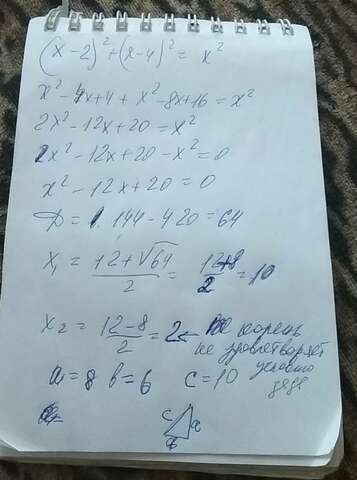 (x-2)² + (x-4)² = x²
x² - 4x + 4 + x² - 8x + 16 = x²
2x² - 12x + 20 = x²
2x² - 12x + 20 - x² = 0
x² - 12x + 20 = 0
D = 144 - 4·20 = 64
x₁ = (12 + √64)/2 = (12+8)/2 = 10
x₂ = (12-8)/2 = 2 - корень
не удовлетворяет
условию
a = 8 b = 6 c = 10
c a
b